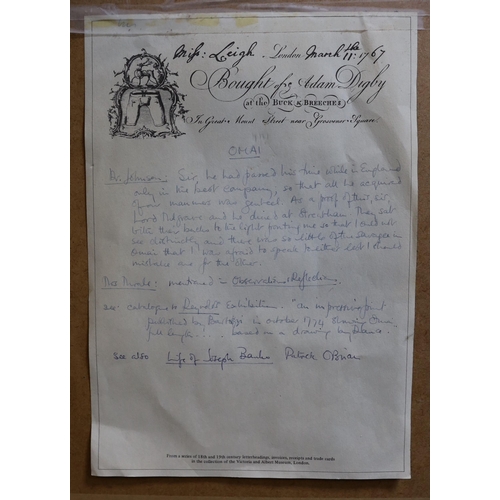 Miss: Leigh London March 11th 1767
Bought of Adam Digby
at the BUCK & BREECHES
In Great Mount Street near Grosvenor Square
OMAI
Mr. Johnson: Sir, he had passed his time while in England
only in the best company, so that all he acquired
of our manners was genteel. As a proof of this, Sir,
Lord Mulgrave and he dined at Streatham. They sat
with their backs to the light fronting me so that I could not
see distinctly, and there was so little of the savage in
Omai that I was afraid to speak to either lest I should
mistake one for the other.
mentioned in Observations & Reflections
see catalogue to Reynolds Exhibition. "an impressive print
published by Bartolozzi in October 1774 showing Omai
full length... based on a drawing by Dance."
See also Life of Joseph Banks Patrick O'Brian
From a series of 18th and 19th century letterheadings, invoices, receipts and trade cards
in the collection of the Victoria and Albert Museum, London.